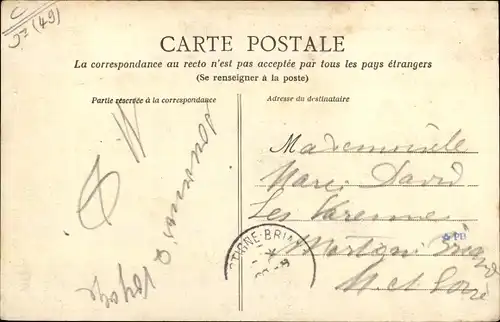 J2 (49)
CARTE POSTALE
La correspondance au recto n'est pas acceptée par tous les pays étrangers
(Se renseigner à la poste)
Partie réservée à la correspondance
Adresse du destinataire
Mademoiselle
Marie David
Les Varennes
Martigné Briand
M et Loire
TIGNÉ-BRIAN